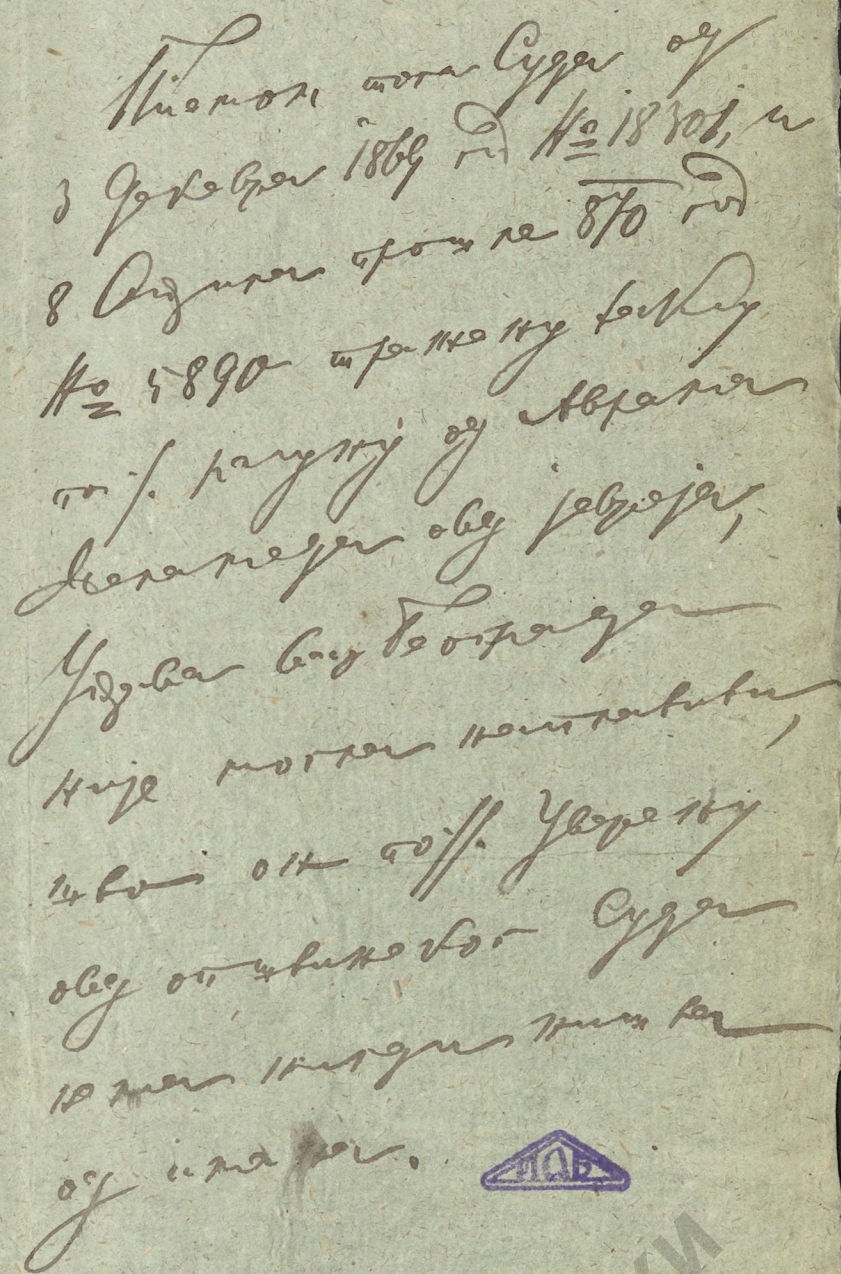 Писмом тога Суда од
3 Декемвра 1869 год № 18301, и
8 Априла прошле 870 год
№ 5890 тражену таксу
по ./. рачуну од Аврама
овд јевреја,
Удова Београда
није могла наплатити,
што он по //. Уверењу
овд општинског Суда
нема нигди ништа
од имања.
ИАБ
КИ